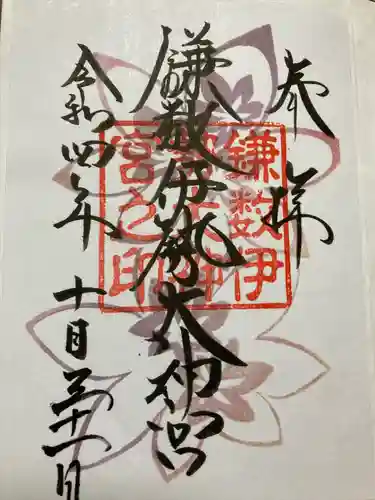 奉拝
鎌数伊勢大神宮
令和四年
十月三十一日
鎌数伊
勢大神
宮之印